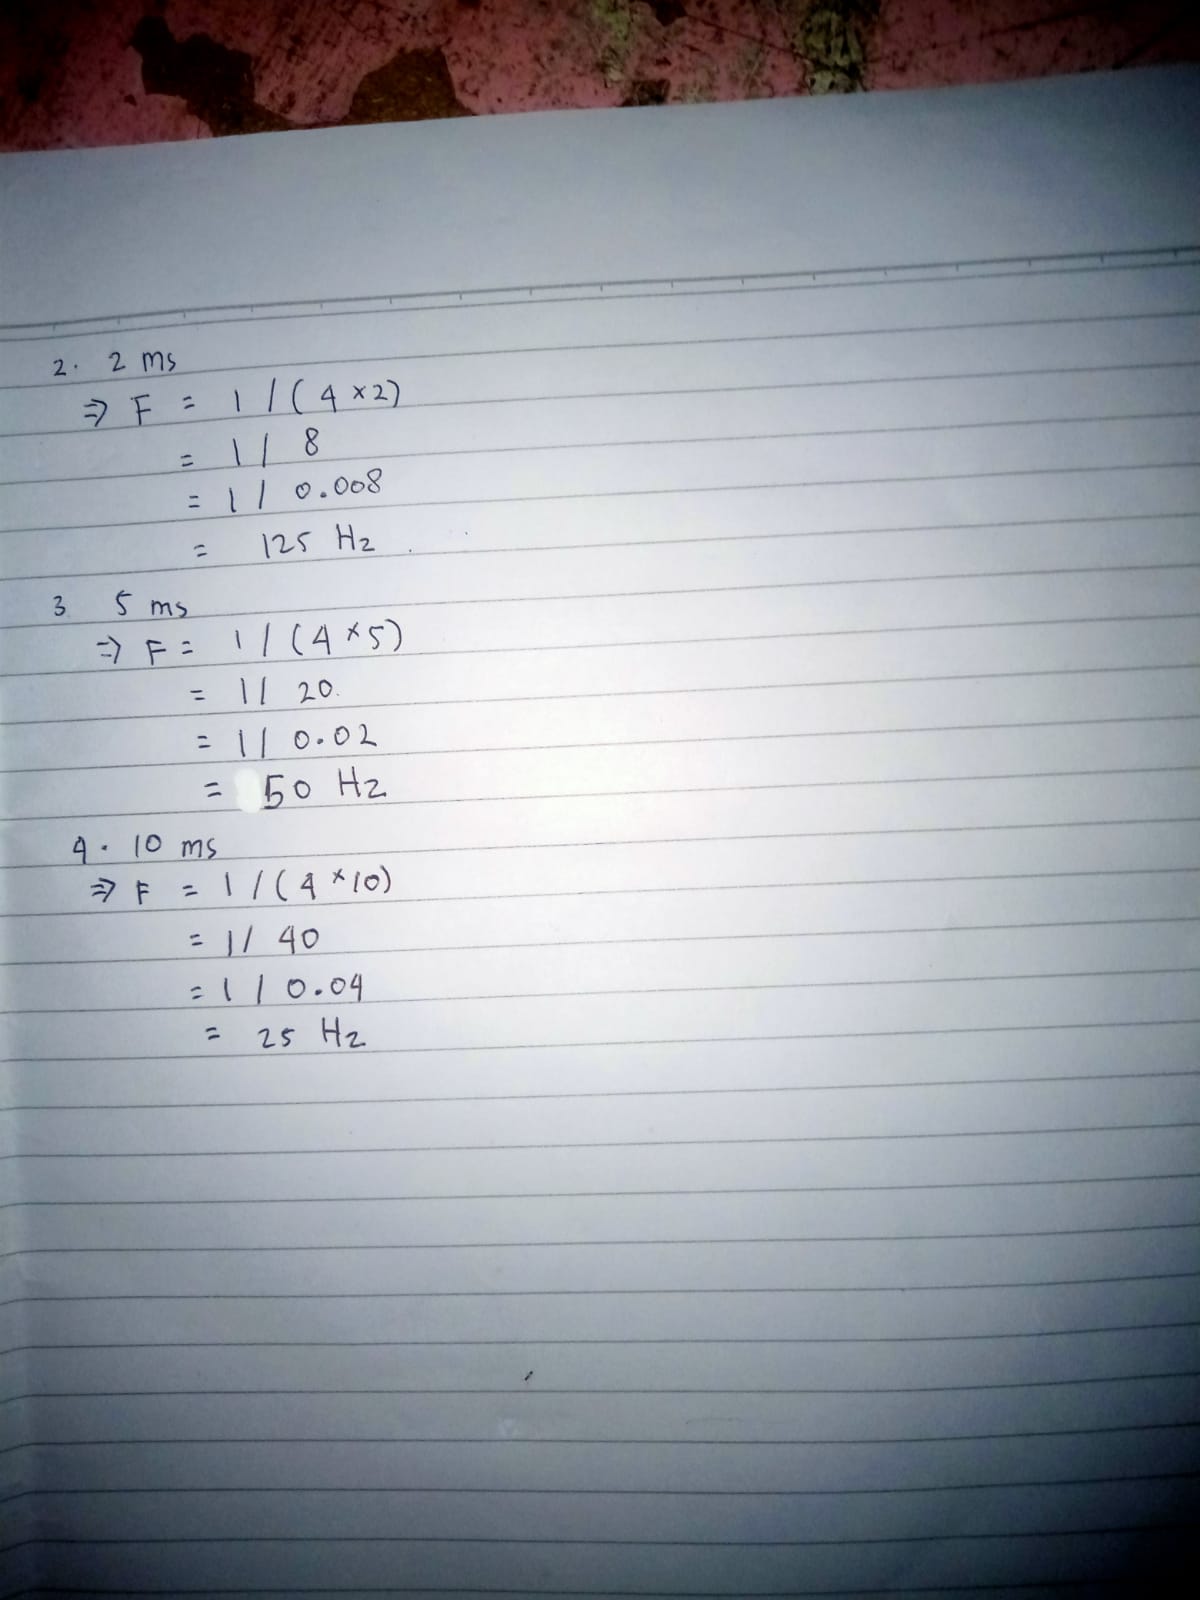 2. 2 ms
⇒ F = 1 / ( 4 × 2)
= 1 / 8
= 1 / 0.008
= 125 Hz
3 5 ms
⇒ F = 1 / ( 4 × 5)
= 1 / 20.
= 1 / 0.02
= 50 Hz
4. 10 ms
⇒ F = 1 / ( 4 × 10)
= 1 / 40
= 1 / 0.04
= 25 Hz